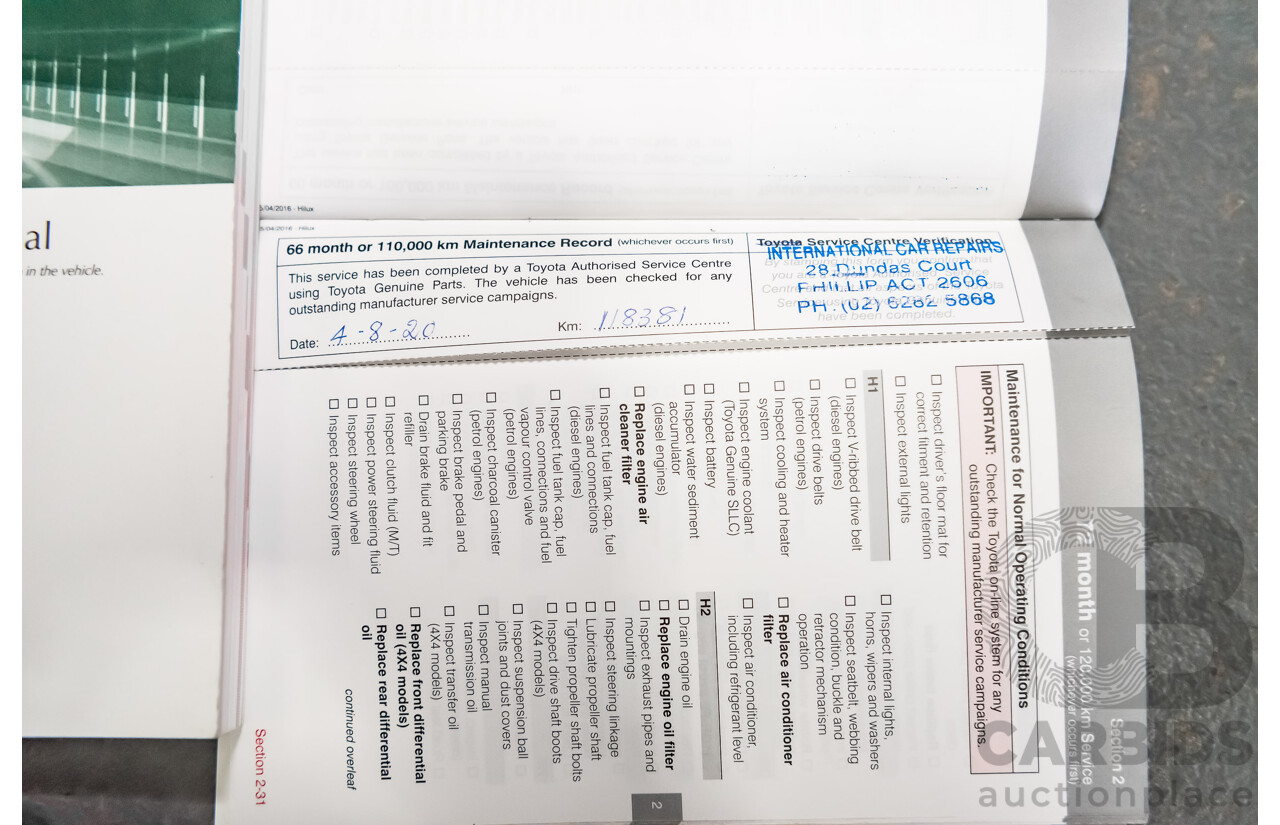 al
in the vehicle.
5/04/2016 - Hilux
5/04/2016 - Hilux
66 month or 110,000 km Maintenance Record (whichever occurs first)
This service has been completed by a Toyota Authorised Service Centre
using Toyota Genuine Parts. The vehicle has been checked for any
outstanding manufacturer service campaigns.
Date: 4-8-20
Km: 118381
Toyota Service Centre Verification
INTERNATIONAL CAR REPAIRS
28 Dundas Court
PHILLIP ACT 2606
PH: (02) 6282 5868
have been completed.
Section 2
month or 120,000 km Service
(whichever occurs first)
Maintenance for Normal Operating Conditions
IMPORTANT: Check the Toyota on-line system for any
outstanding manufacturer service campaigns.
☐ Inspect driver's floor mat for
correct fitment and retention
☐ Inspect external lights
H1
☐ Inspect V-ribbed drive belt
(diesel engines)
☐ Inspect drive belts
(petrol engines)
☐ Inspect cooling and heater
system
☐ Inspect engine coolant
(Toyota Genuine SLLC)
☐ Inspect battery
☐ Inspect water sediment
accumulator
(diesel engines)
☐ Replace engine air
cleaner filter
☐ Inspect fuel tank cap, fuel
lines and connections
(diesel engines)
☐ Inspect fuel tank cap, fuel
lines, connections and fuel
vapour control valve
(petrol engines)
☐ Inspect charcoal canister
(petrol engines)
☐ Inspect brake pedal and
parking brake
☐ Drain brake fluid and fit
refiller
☐ Inspect clutch fluid (M/T)
☐ Inspect power steering fluid
☐ Inspect steering wheel
☐ Inspect accessory items
☐ Inspect internal lights,
horns, wipers and washers
☐ Inspect seatbelt, webbing
condition, buckle and
retractor mechanism
operation
☐ Replace air conditioner
filter
☐ Inspect air conditioner,
including refrigerant level
H2
☐ Drain engine oil
☐ Replace engine oil filter
☐ Inspect exhaust pipes and
mountings
☐ Inspect steering linkage
☐ Lubricate propeller shaft
☐ Tighten propeller shaft bolts
☐ Inspect drive shaft boots
(4X4 models)
☐ Inspect suspension ball
joints and dust covers
☐ Inspect manual
transmission oil
☐ Inspect transfer oil
(4X4 models)
☐ Replace front differential
oil (4X4 models)
☐ Replace rear differential
oil
continued overleaf
2
Section 2-31
CARBIDS
auctionplace